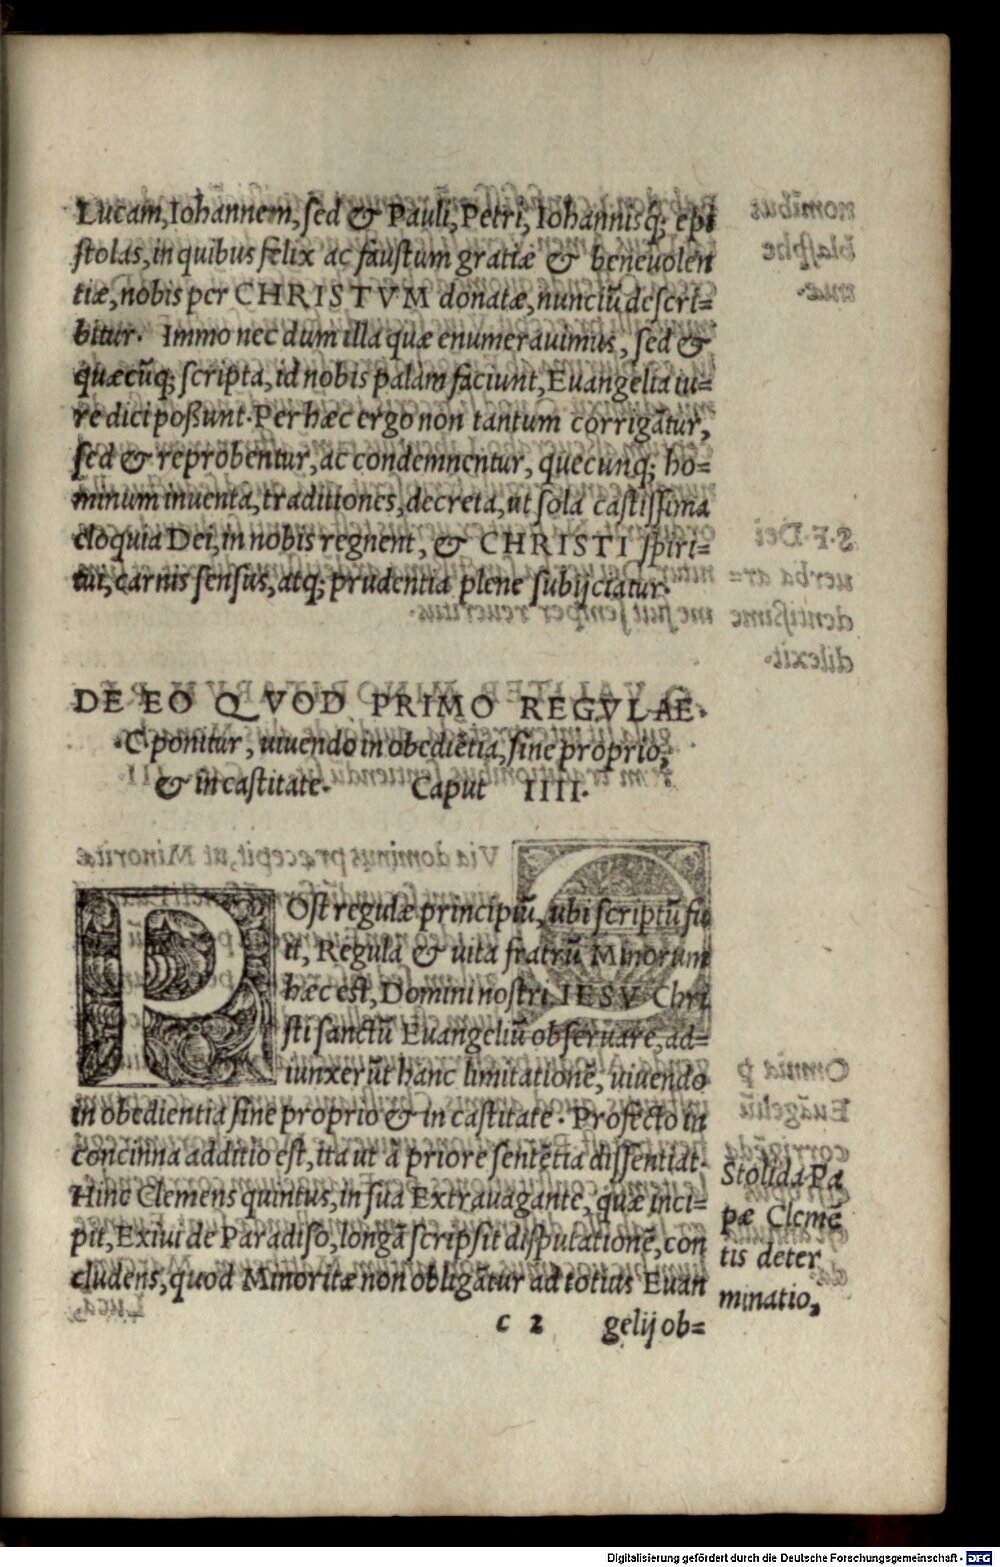 Lucam, Iohannem, sed & Pauli, Petri, Iohannisq; epi
stolas, in quibus felix ac faustum gratiæ & beneuolen
tiæ, nobis per CHRISTVM donatæ, nunciũ descri=
bitur. Immo nec dum illa quæ enumerauimus, sed &
quæcũq; scripta, id nobis palàm faciunt, Euangelia iu=
re dici poßunt. Per hæc ergo non tantum corrigãtur,
sed & reprobentur, ac condemnentur, quecunq; ho=
minum inuenta, traditiones, decreta, ut sola castissima
eloquia Dei, in nobis regnent, & CHRISTI spiri=
tui, carnis sensus, atq; prudentia plene subijciatur.
DE EO QVOD PRIMO REGVLAE.
C. ponitur, uiuendo in obediẽtia, sine proprio,
& in castitate. Caput IIII.
POst regulæ principiũ, ubi scriptũ fu
it, Regula & uita fratrũ Minorum
hæc est, Domini nostri IESV Chri
sti sanctũ Euangeliũ obseruare, ad=
iunxerũt hanc limitationẽ, uiuendo
in obedientia sine proprio & in castitate. Profecto in
concinna additio est, ita ut à priore sentẽtia dissentiat.
Hinc Clemens quintus, in sua Extrauagante, quæ inci=
pit, Exiui de Paradiso, longã scripsit disputationẽ, con
cludens, quod Minoritæ non obligãtur ad totius Euan
Stolida Pa
pæ Clemẽ
tis deter
minatio,
c 2 gelij ob=
Digitalisierung gefördert durch die Deutsche Forschungsgemeinschaft - DFG